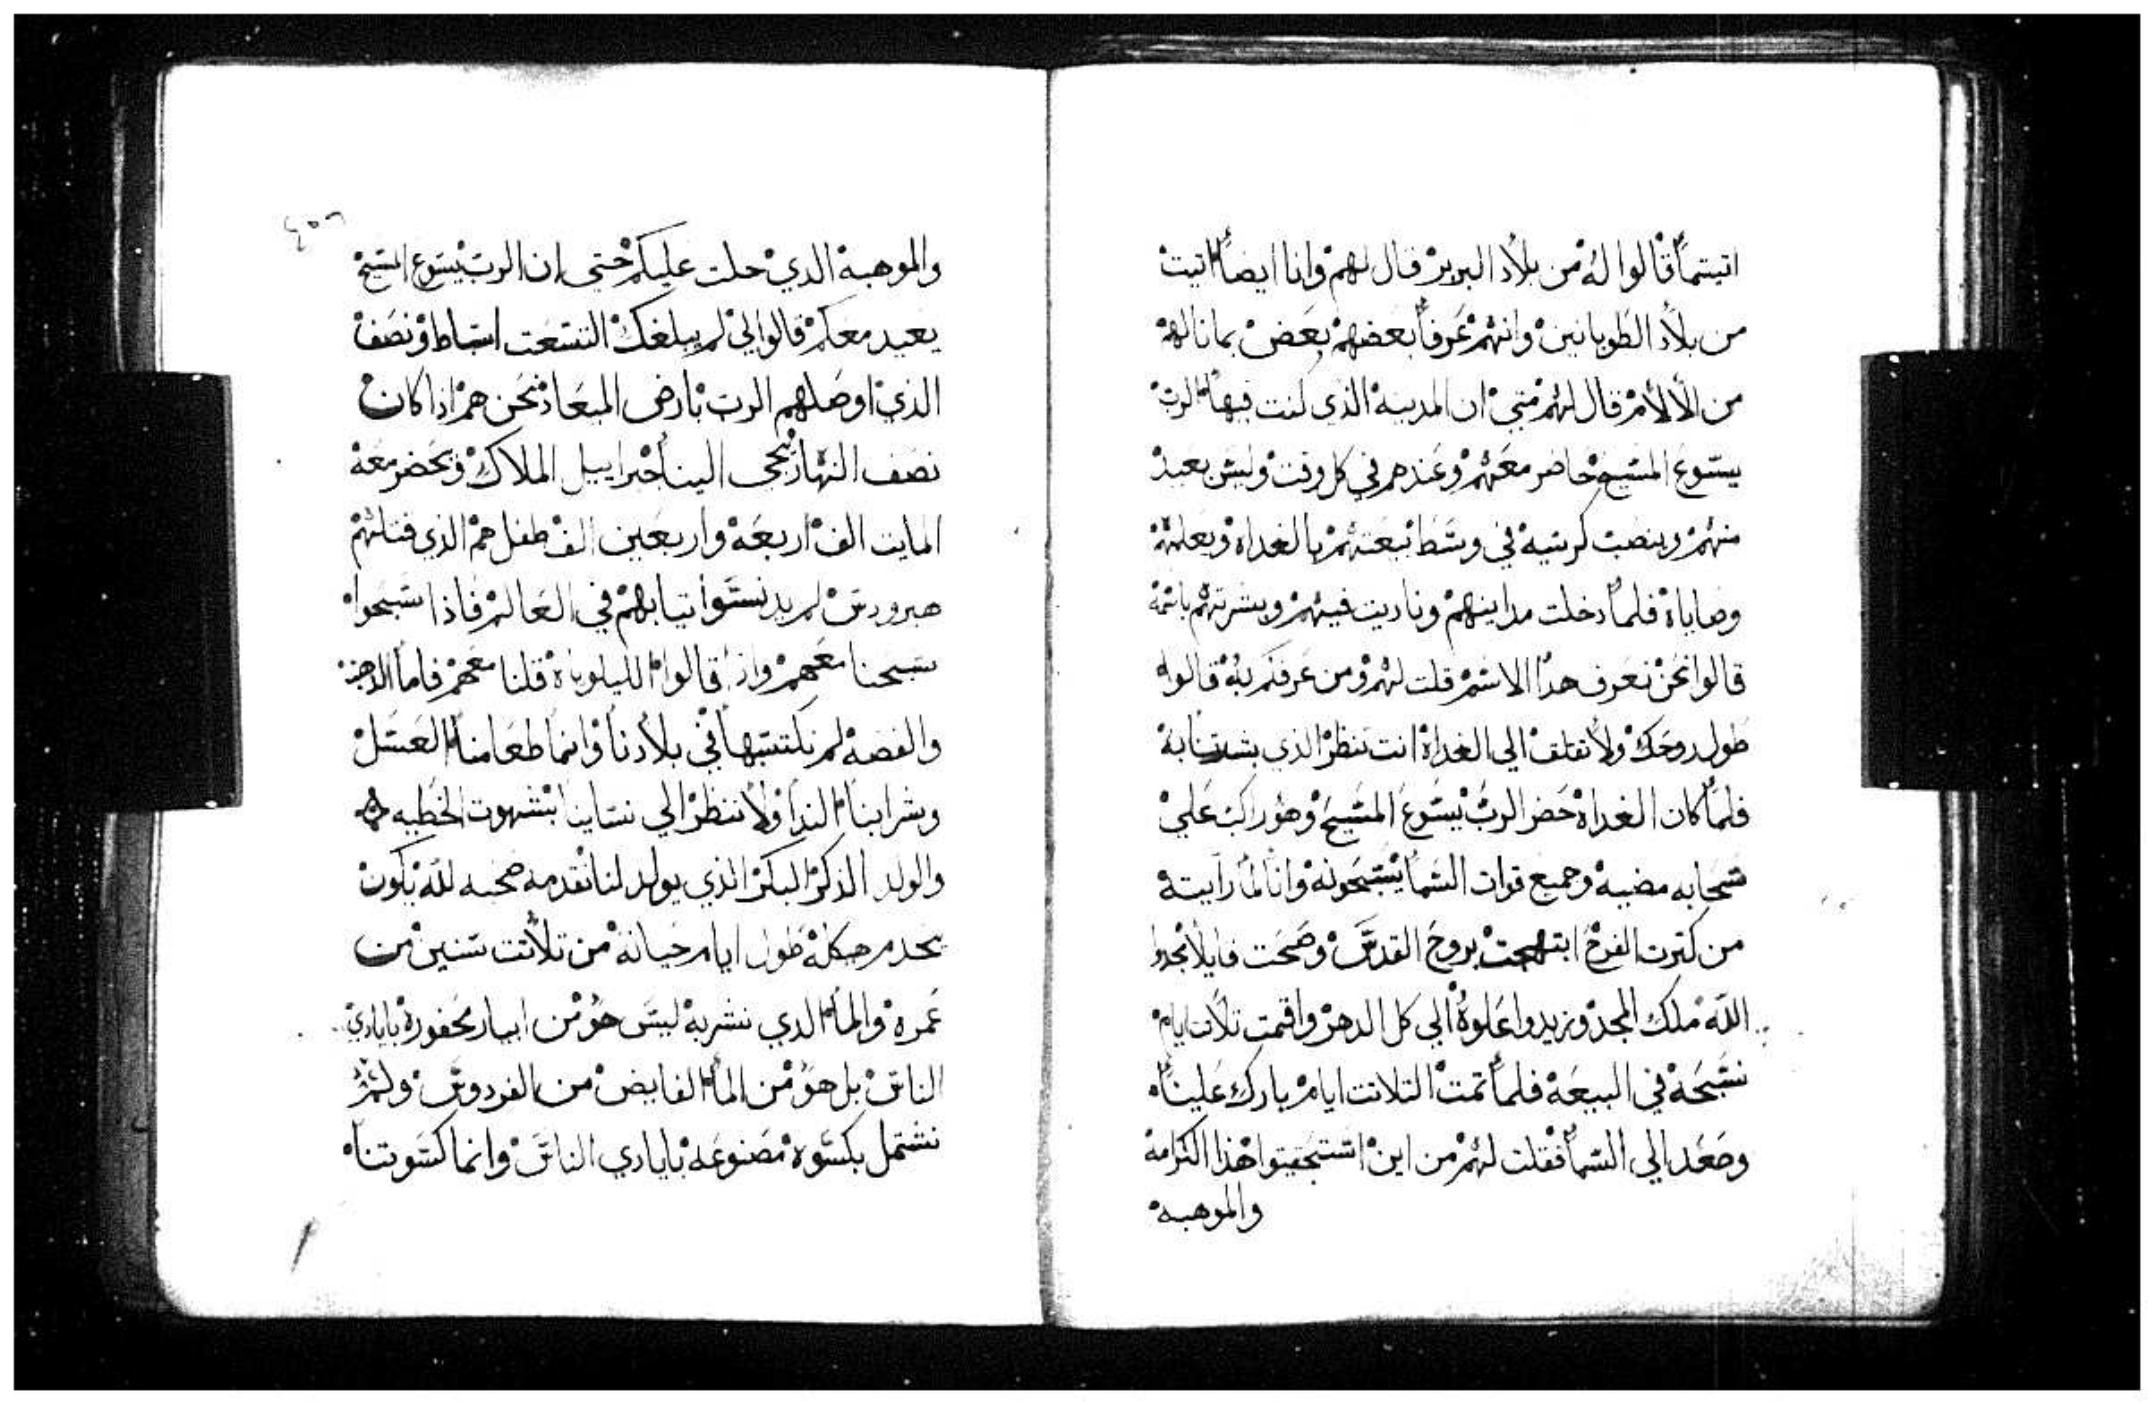 اتيتما قالوا له من بلاد البربر قال لهم وانا ايضا اتيت
من بلاد الطوبانين وانهم عرفا بعضهم بعض بما نالهم
من الالام قال لهم متي ان المدينه الذي كنت فيها الرب
يسوع المسيح حاضر معهم وعندهم في كل وقت وليس بعيد
منهم وينصب كرسيه في وسط بيعتهم بالغداه ويعلمهم
وصاياه فلما دخلت مداينهم وناديت فيهم وبشرتهم باسمه
قالوا نحن نعرف هدا الاسم قلت لهم ومن عرفكم به قالوا
طول روحك ولا تقلق الي الغداه انت تنظر الذي بشرتنا به
فلما كان الغداه حضر الرب يسوع المسيح وهو راكب علي
سحابه مضيه وجميع قوات السما يسبحونه وانا لما رايته
من كترت الفرح ابتهجت بروح القدس وصحت قايلا مجدوا
الله ملك المجد وزيدوا علوه الي كل الدهر واقمت تلات ايام
نسبحه في البيعه فلما تمت التلاتت ايام بارك علينا
وصعد الي السما فقلت لهم من اين استحقيتوا هذا الكرامه
والموهبه
والموهبه الدي حلت عليكم حتي ان الرب يسوع المسيح
يعيد معكم قالوا لي لم يبلغك التسعت اسباط ونصف
الذي اوصلهم الرب بارض الميعاد نحن هم اذا كان
نصف النهار يجي الينا جبراييل الملاك ويحضر معه
المايت الف اربعه واربعين الف طفل هم الذي قتلهم
هيرودس لم يدنسوا تيابهم في العالم فاذا سبحوا
سبحنا معهم واذا قالوا الليلوياه قلنا معهم فاما الدهب
والفضه لم نكتسبها في بلادنا وانما طعامنا العسل
وشرابنا الندا ولا ننظر الي نساينا بشهوت الخطيه
والولد الذكر البكر الذي يولد لنا نقدمه ضحيه لله يكون
يخدم هيكله طول ايام حياته من تلاتت سنين من
عمره والما الدي نشربه ليس هو من ابيار محفوره بايادي
الناس بل هو من الما الفايض من الفردوس ولم
نشتمل بكسوه مصنوعه بايادي الناس وانما كسوتنا